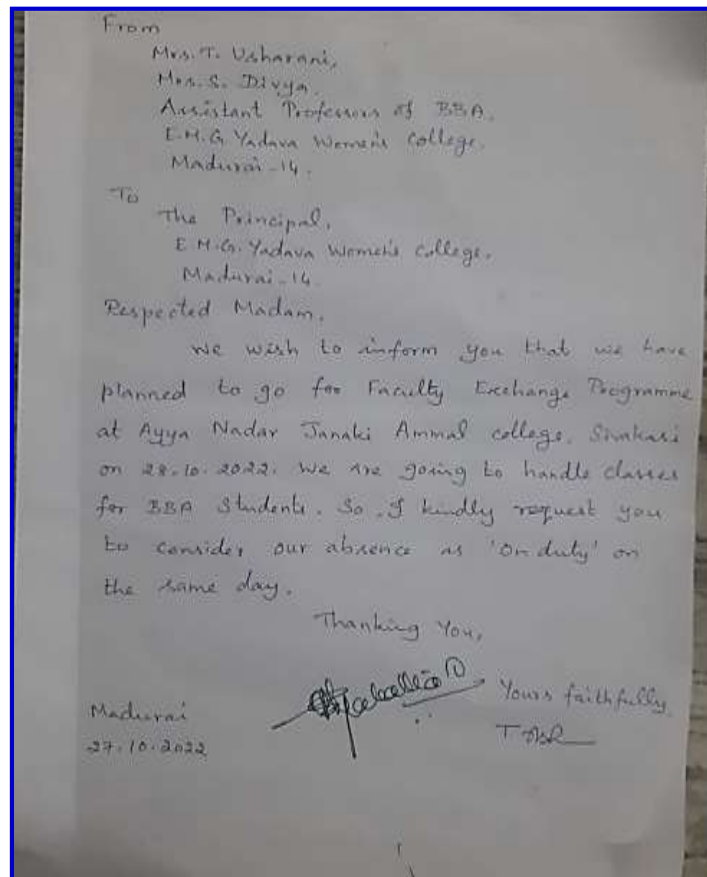 From
Mrs. T. Usharani,
Mrs. S. Divya.
Assistant Professors of BBA,
E.M.G Yadava Women's College.
Madurai-14.
To
The Principal,
E.M.G. Yadava Women's College.
Madurai-14.
Respected Madam,
We wish to inform you that we have
planned to go for Faculty Exchange Programme
at Ayya Nadar Janaki Ammal college, Sivakasi
on 28.10.2022. We are going to handle classes
for BBA Students. So, I kindly request you
to consider our absence as 'On duty' on
the same day.
Thanking You,
Yours faithfully,
Madurai
27.10.2022